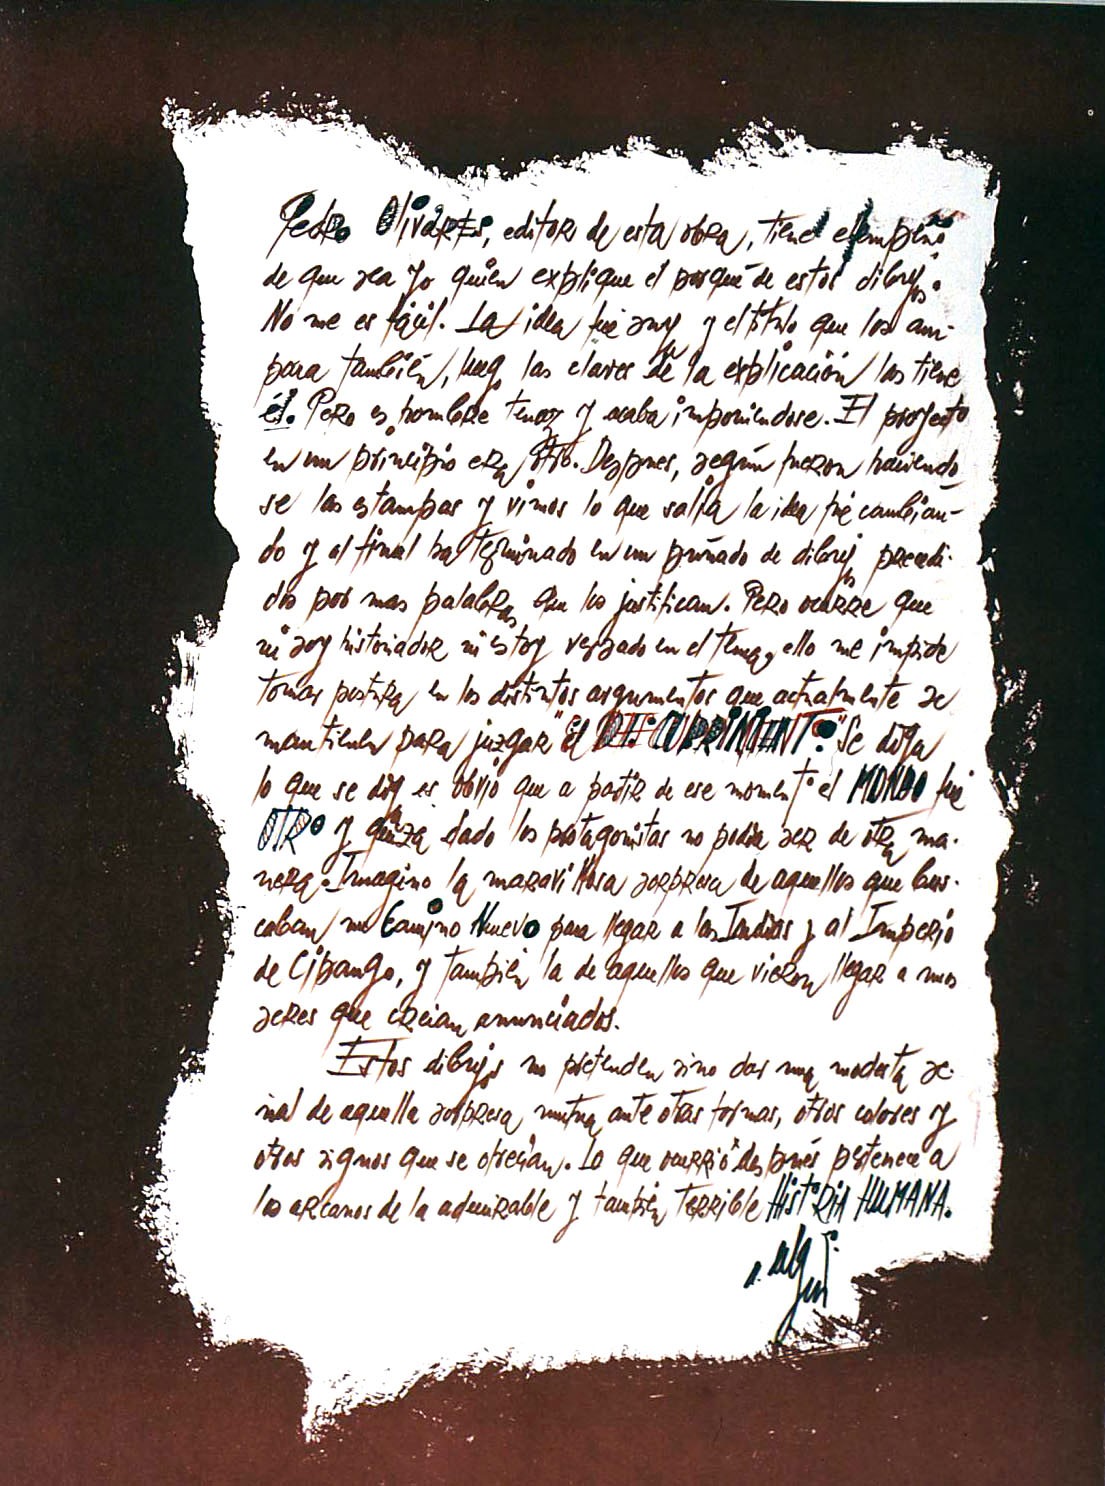 Pedro Olivares, editor de esta obra, tiene el empeño
de que sea yo quien explique el porqué de estos dibujos.
No me es fácil. La idea fué suya y el título que los am-
para también, luego las claves de la explicación las tiene
él. Pero es hombre tenaz y acaba imponiendose. El proyecto
en un principio era otro. Despues, según fueron haciendo
se las estampas y vimos lo que salía la idea fué cambian-
do y al final ha terminado en un puñado de dibujos precedi-
dos por unas palabras que los justifican. Pero ocurre que
ni soy historiador ni estoy versado en el tema, ello me impide
tomar postura en los distintos argumentos que actualmente se
mantienen para juzgar "el DESCUBRIMIENTO." Se diga
lo que se diga es obvio que a partir de ese momento el MUNDO fué
OTRO y quizá dado los protagonistas no podia ser de otra ma-
nera. Imagino la maravillosa sorpresa de aquellos que bus-
caban un Camino Nuevo para llegar a las Indias y al Imperio
de Cipango, y también la de aquellos que vieron llegar a unos
seres que creian anunciados.
Estos dibujos no pretenden sino dar una modesta se-
ñal de aquella sorpresa mutua ante otras formas, otros colores y
otros signos que se ofrecian. Lo que ocurrió después pertenece a
los arcanos de la admirable y también terrible HISTORIA HUMANA.